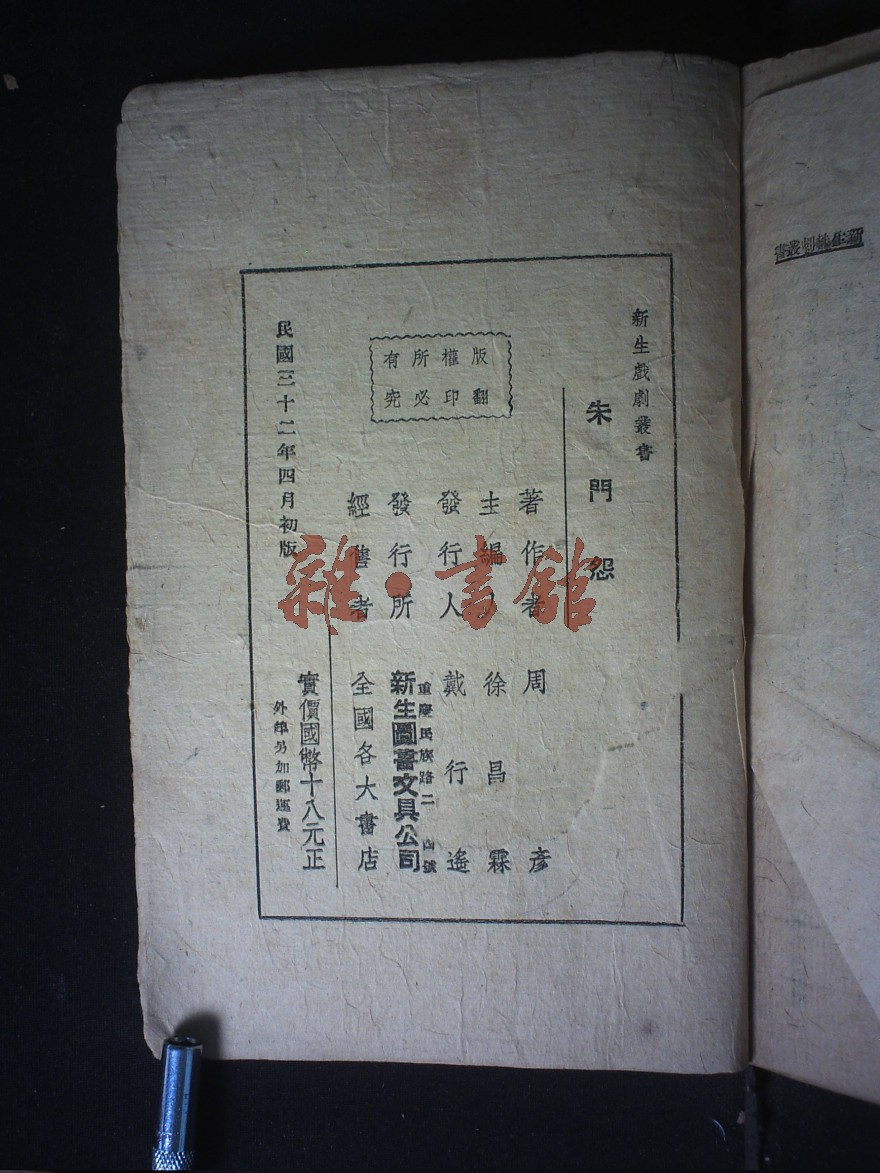 新生戲劇叢書
朱門怨
著作者 周彥
主編人 徐昌霖
發行人 戴行遙
重慶民族路二
號
發行所 新生圖書文具公司
經售者 全國各大書店
版權所有
翻印必究
民國三十二年四月初版
實價國幣十八元正
外埠另加郵運費
雜·書館
新生戲劇叢書